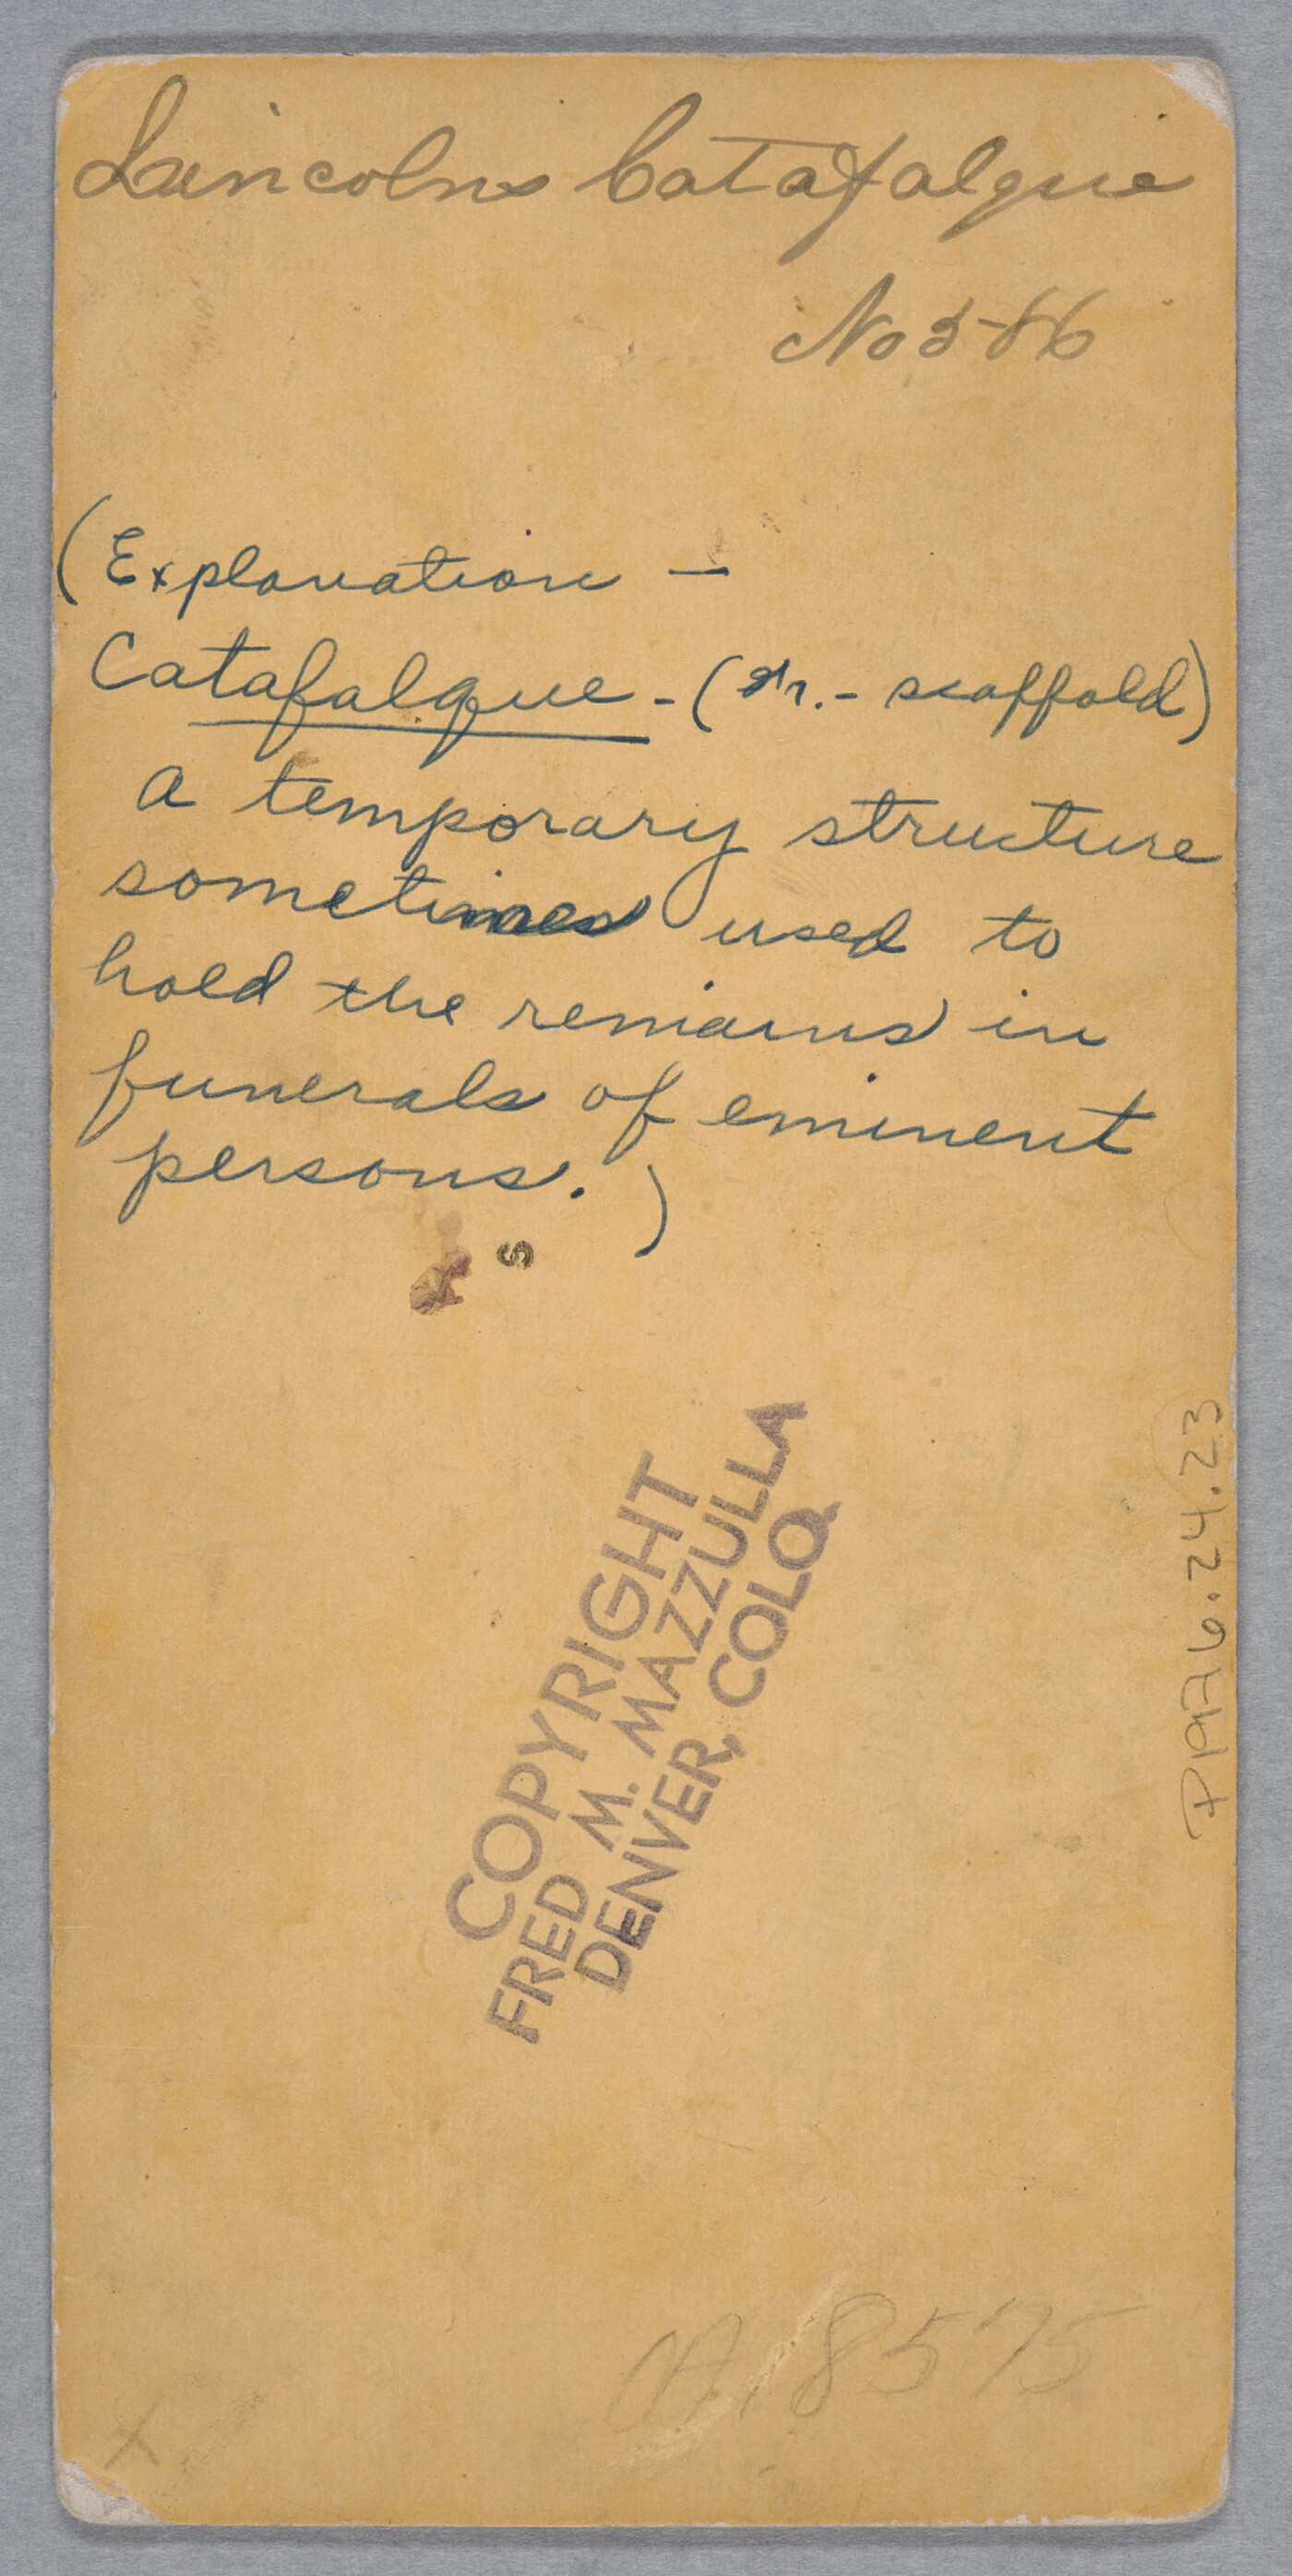 Lincolns Catafalque
No 586
(Explanation —
Catafalque - (Fr. - scaffold)
a temporary structure
sometimes used to
hold the remains in
funerals of eminent
persons.)
S
COPYRIGHT
FRED M. MAZZULLA
DENVER, COLO.
P1976.24.23
A18575
X